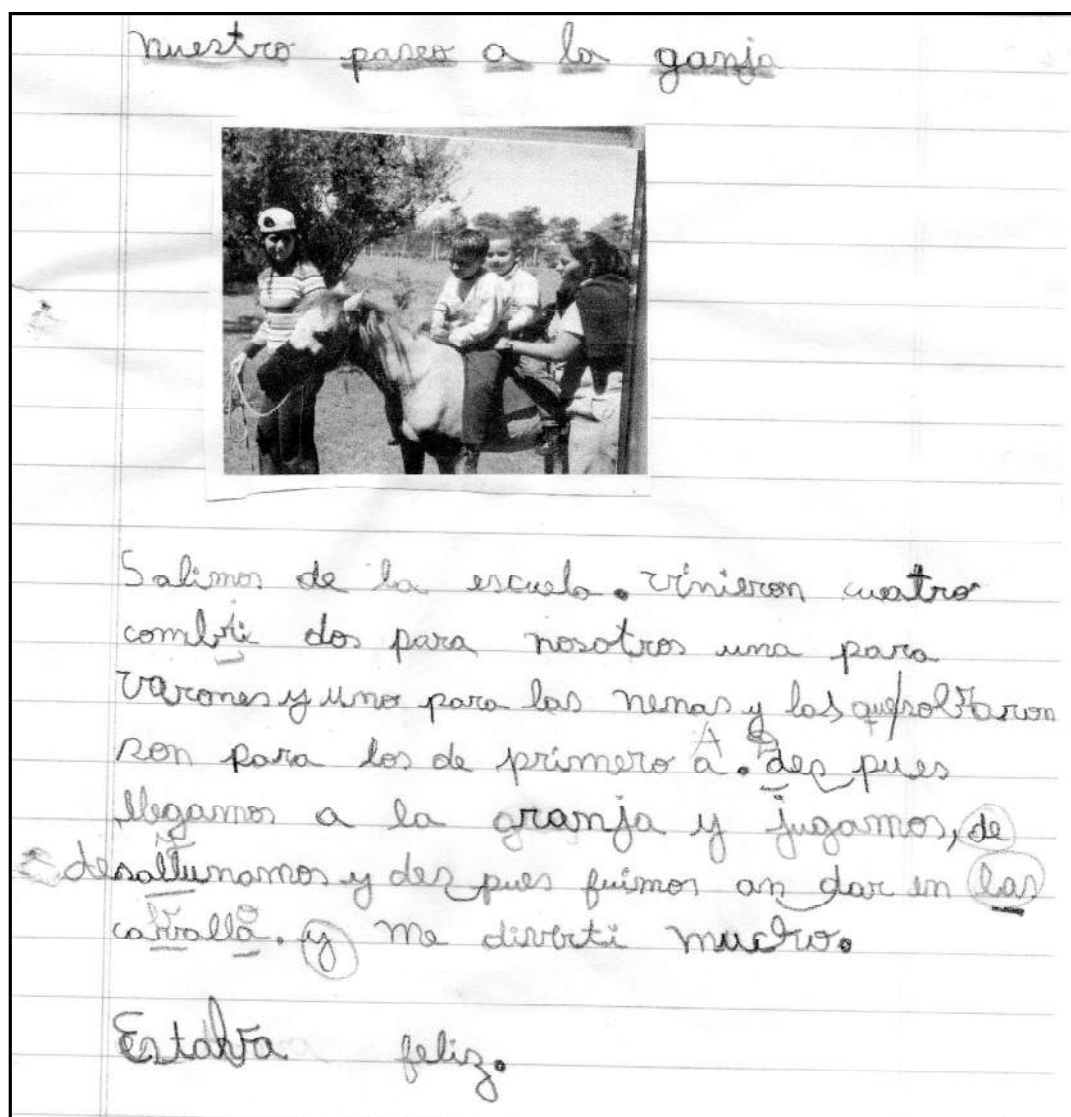 nuestro paseo a la ganja
Salimos de la escuela. vinieron cuatro
combi dos para nosotros una para
varones y uno para las nenas y las que sobraron
son para los de primero A. dez pues
llegamos a la granja y jugamos, de
desallunamos y dez pues fuimos an dar en las
caballo. y me diverti mucho.
Estaba feliz.